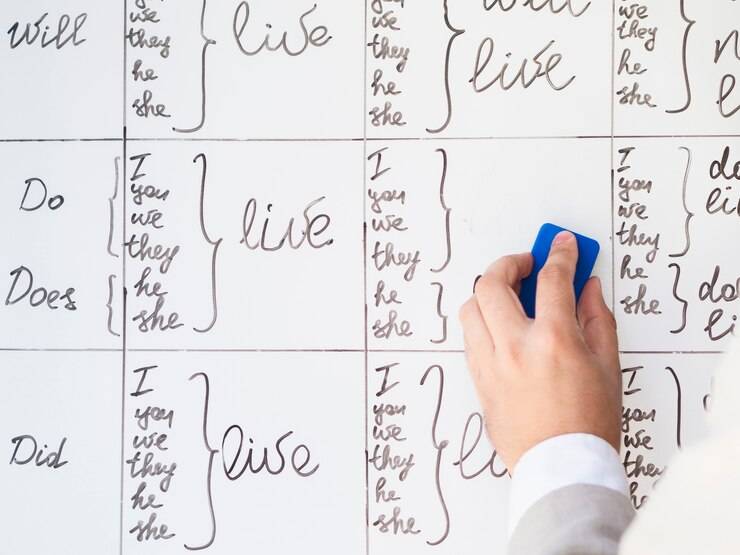 Will
we
they
he
she
live
we
they
he
she
will
live
we
they
he
she
Do
Does
I
you
we
they
he
she
live
I
you
we
they
he
she
I
you
we
they
he
she
Did
I
you
we
they
he
she
live
I
you
we
they
he
she
I
you
we
they